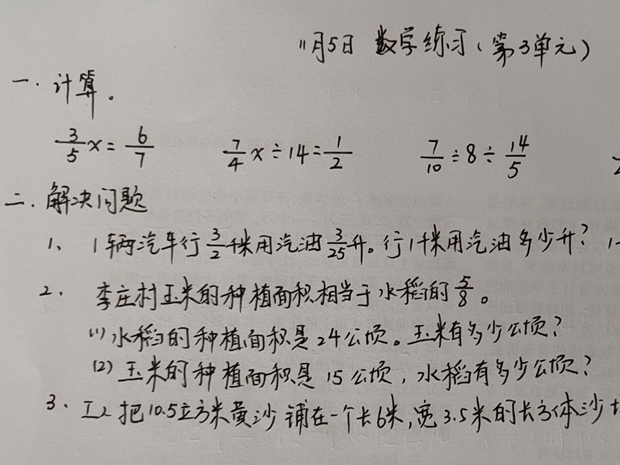 11月5日 数学练习(第3单元)
一、计算。
3/5 x = 6/7  7/4 x ÷ 14 = 1/2  7/10 ÷ 8 ÷ 14/5
二、解决问题
1、1辆汽车行3/2千米用汽油3/25升。行1千米用汽油多少升? 1
2、李庄村玉米的种植面积相当于水稻的5/8。
(1)水稻的种植面积是24公顷。玉米有多少公顷?
(2)玉米的种植面积是15公顷,水稻有多少公顷?
3、工人把10.5立方米黄沙铺在一个长6米,宽3.5米的长方体沙